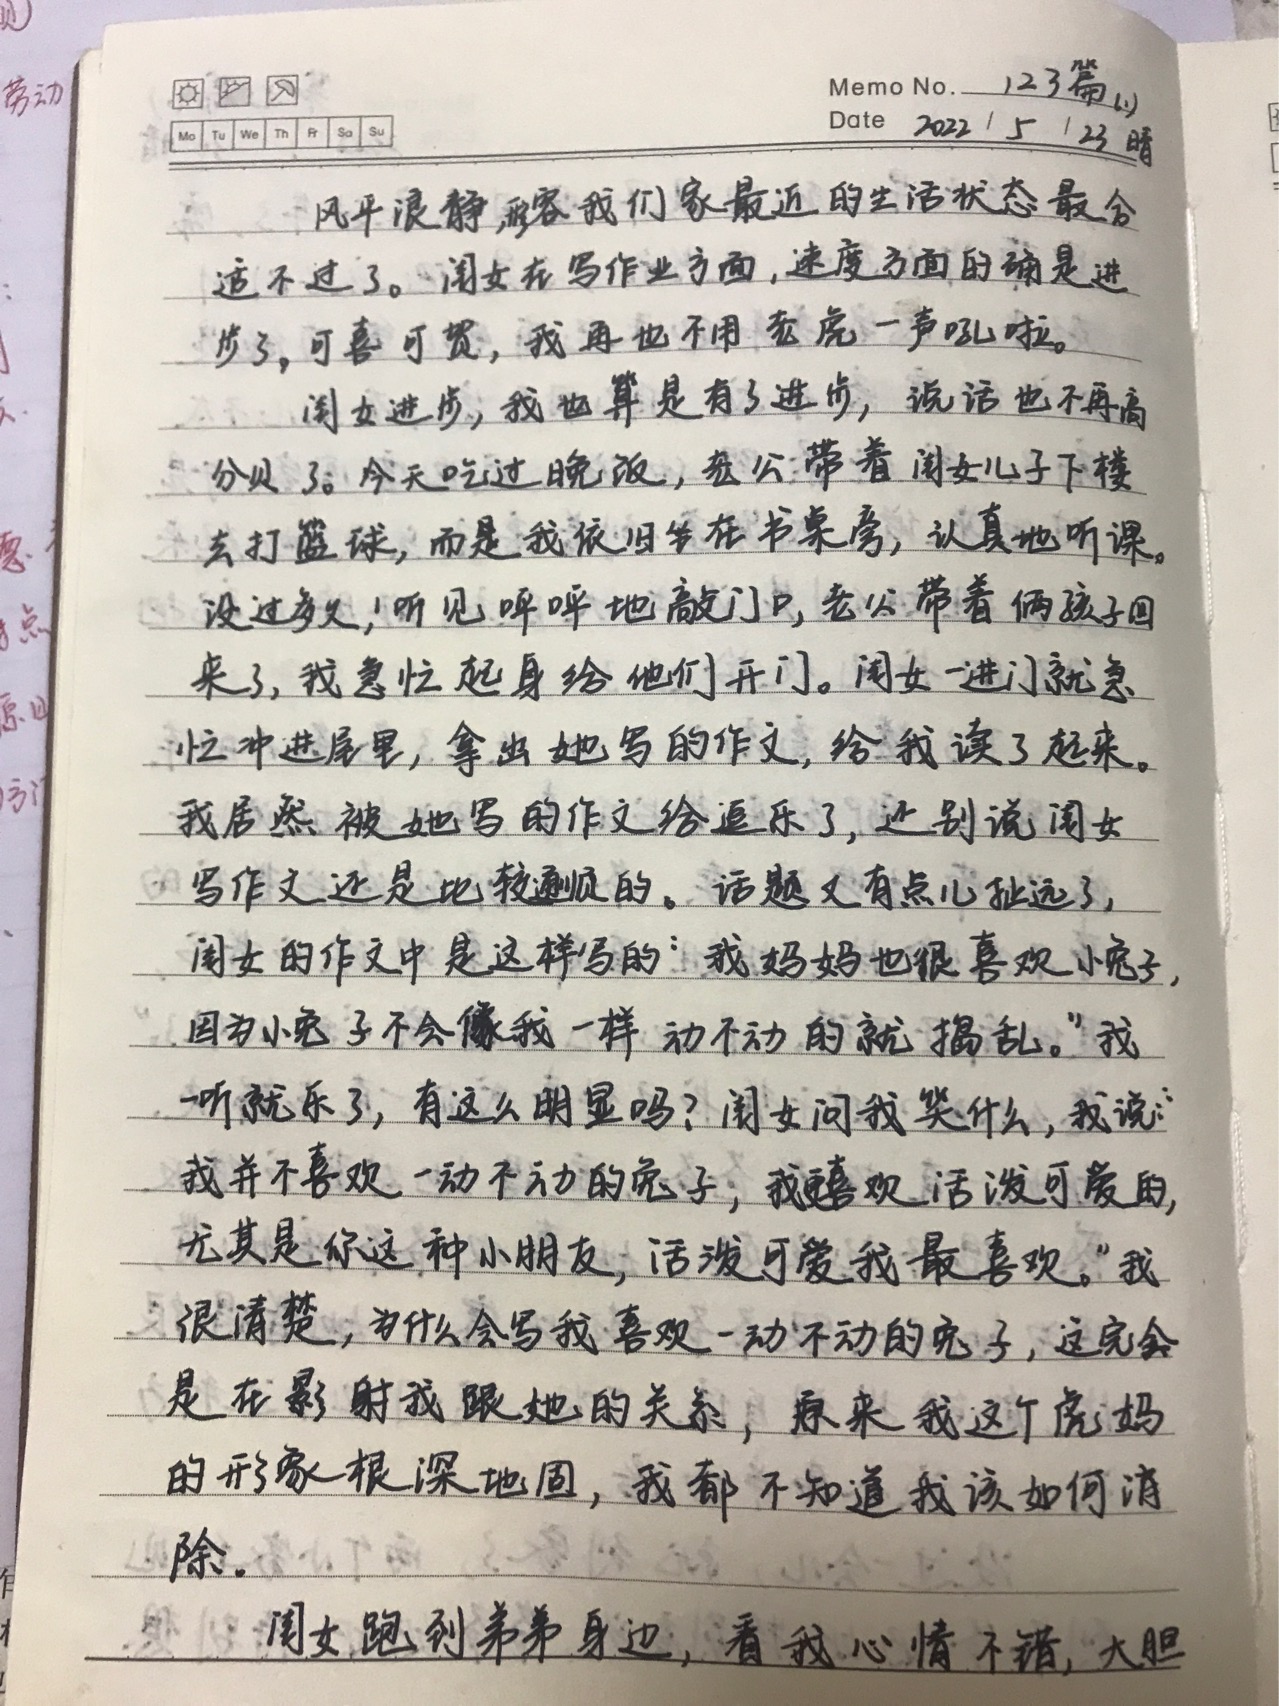 劳动
Memo No. 123篇(1)
Mo Tu We Th Fr Sa Su
Date 2022/5/23 晴
风平浪静,形容我们家最近的生活状态最合
适不过了。闺女在写作业方面,速度方面的确是进
步了。可喜可贺,我再也不用老虎一声吼啦。
闺女进步,我也算是有了进步,说话也不再高
分贝了。今天吃过晚饭,老公带着闺女儿子下楼
去打篮球,而是我依旧坐在书桌旁,认真地听课。
没过多久,听见呯呯地敲门口,老公带着俩孩子回
来了,我急忙起身给他们开门。闺女一进门就急
忙冲进屋里,拿出她写的作文,给我读了起来。
我居然被她写的作文给逗乐了,还别说闺女
写作文还是比较通顺的。话题又有点儿扯远了,
闺女的作文中是这样写的:我妈妈也很喜欢小兔子,
因为小兔子不会像我一样动不动的就捣乱。"我
一听就乐了,有这么明显吗?闺女问我笑什么,我说:"
我并不喜欢一动不动的兔子,我更喜欢活泼可爱的,
尤其是你这种小朋友,活泼可爱我最喜欢。"我
很清楚,为什么会写我喜欢一动不动的兔子,这完全
是在影射我跟她的关系,原来我这个虎妈
的形象根深地固,我都不知道我该如何消
除。
闺女跑到弟弟身边,看我心情不错,大胆